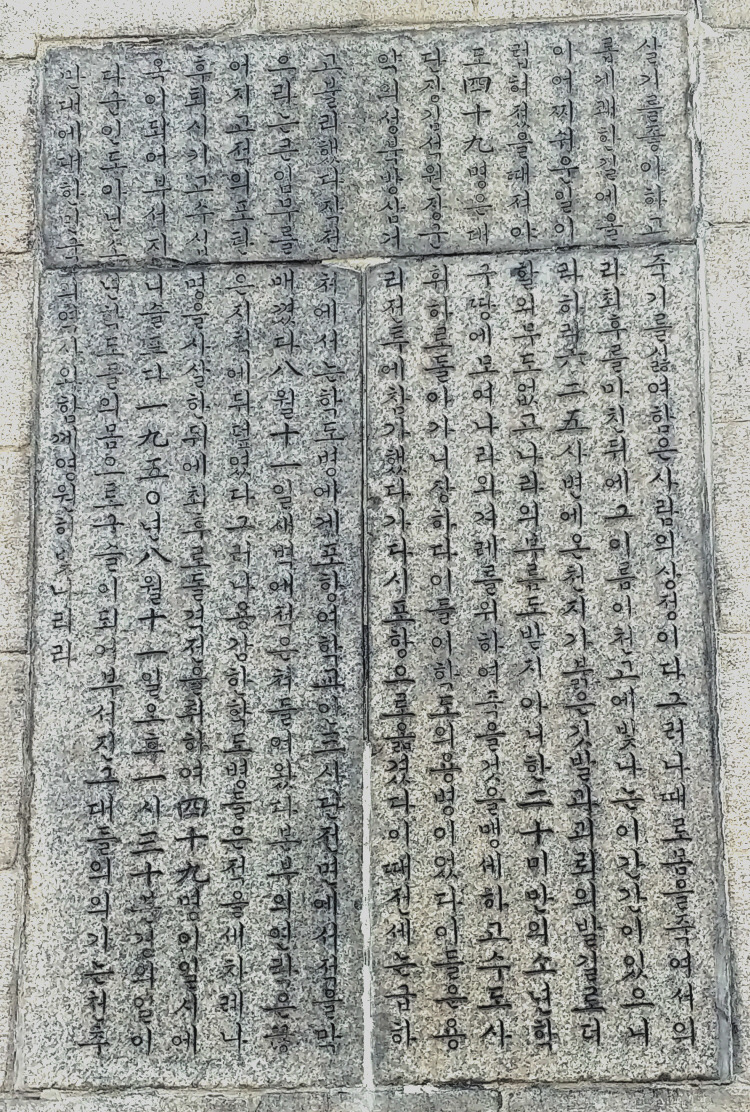 살기를좋아하고죽기를싫여함은사람의상정이다그러나때로몸을죽여서의
롭게쾌한길에올라최후를마친뒤에그이름이천고에빛나는이간간이있으니
이어찌쉬운일이랴하랴六二五사변에온천지가붉은깃발과괴뢰의발길로더
럽혀졌을때져야할의무도없고나라의부름도받지아니한二十미만의소년학
도四十九명은대구땅에모여나라와겨레를위하여죽을것을맹세하고수도사
단장김석원장군휘하로돌아가니장하다이들이학도의용병이었다이들은용
약의성북방삼거리전투에참가했다가다시포항으로옮겼다이때전세는급하
고불리했다작전처에서는학도병에게포항여학교사단전면에서적을막
으라는큰임무를매겼다八월十一일새벽에적은쳐들어왔다본부의연락은끊
어지고적의포탄은지척에뒤덮였다그러나용감한학도병들은적을세차례나
후퇴시키고수십명을사살한뒤에최후로돌격전을취하여四十九명이일시에
옥이되어부서지니슬프다一九五〇년八월十一일오후一시三十분경의일이
다수인도아닌소년학도들의몸으로구슬이되어부서진그대들의의기는천추
만대에대한민국의역사와함께영원히빛나리라